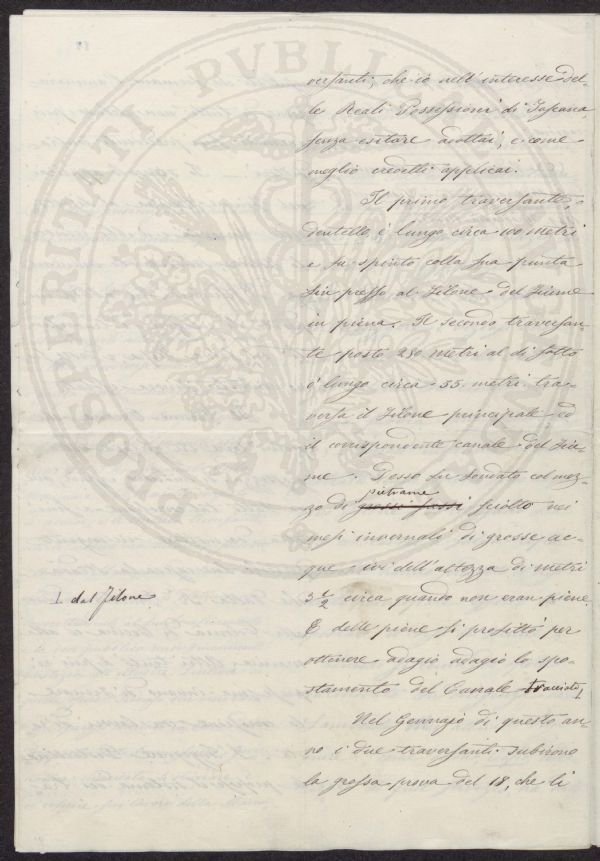 versanti, che io nell'interesse del-
le Reali Possessioni di Toscana
senza esitare adottai, e come
meglio credetti applicai.
Il primo traversante, o
dentello, è lungo circa 100 metri
e fu spinto colla sua punta
fin presso al filone del Fiume
in piena. Il secondo traversan-
te posto 250 metri al di sotto
è lungo circa 55 metri, tra-
versa il filone principale ed
il corrispondente canale del Fiu-
me. Desso fu fondato col mez-
pietrame
zo di grossi sassi sciolto nei
mesi invernali di grosse ac-
que, ivi dell'altezza di metri
⊥ dal filone
3 1/2 circa quando non eran piene.
E delle piene si profittò per
ottenere adagio, adagio lo spo-
stamento del Canale tracciato ⊥
Nel Gennajo di questo an-
no i due traversanti subirono
la grossa prova del 18, che li
PROSPERITATI PVBLICAE